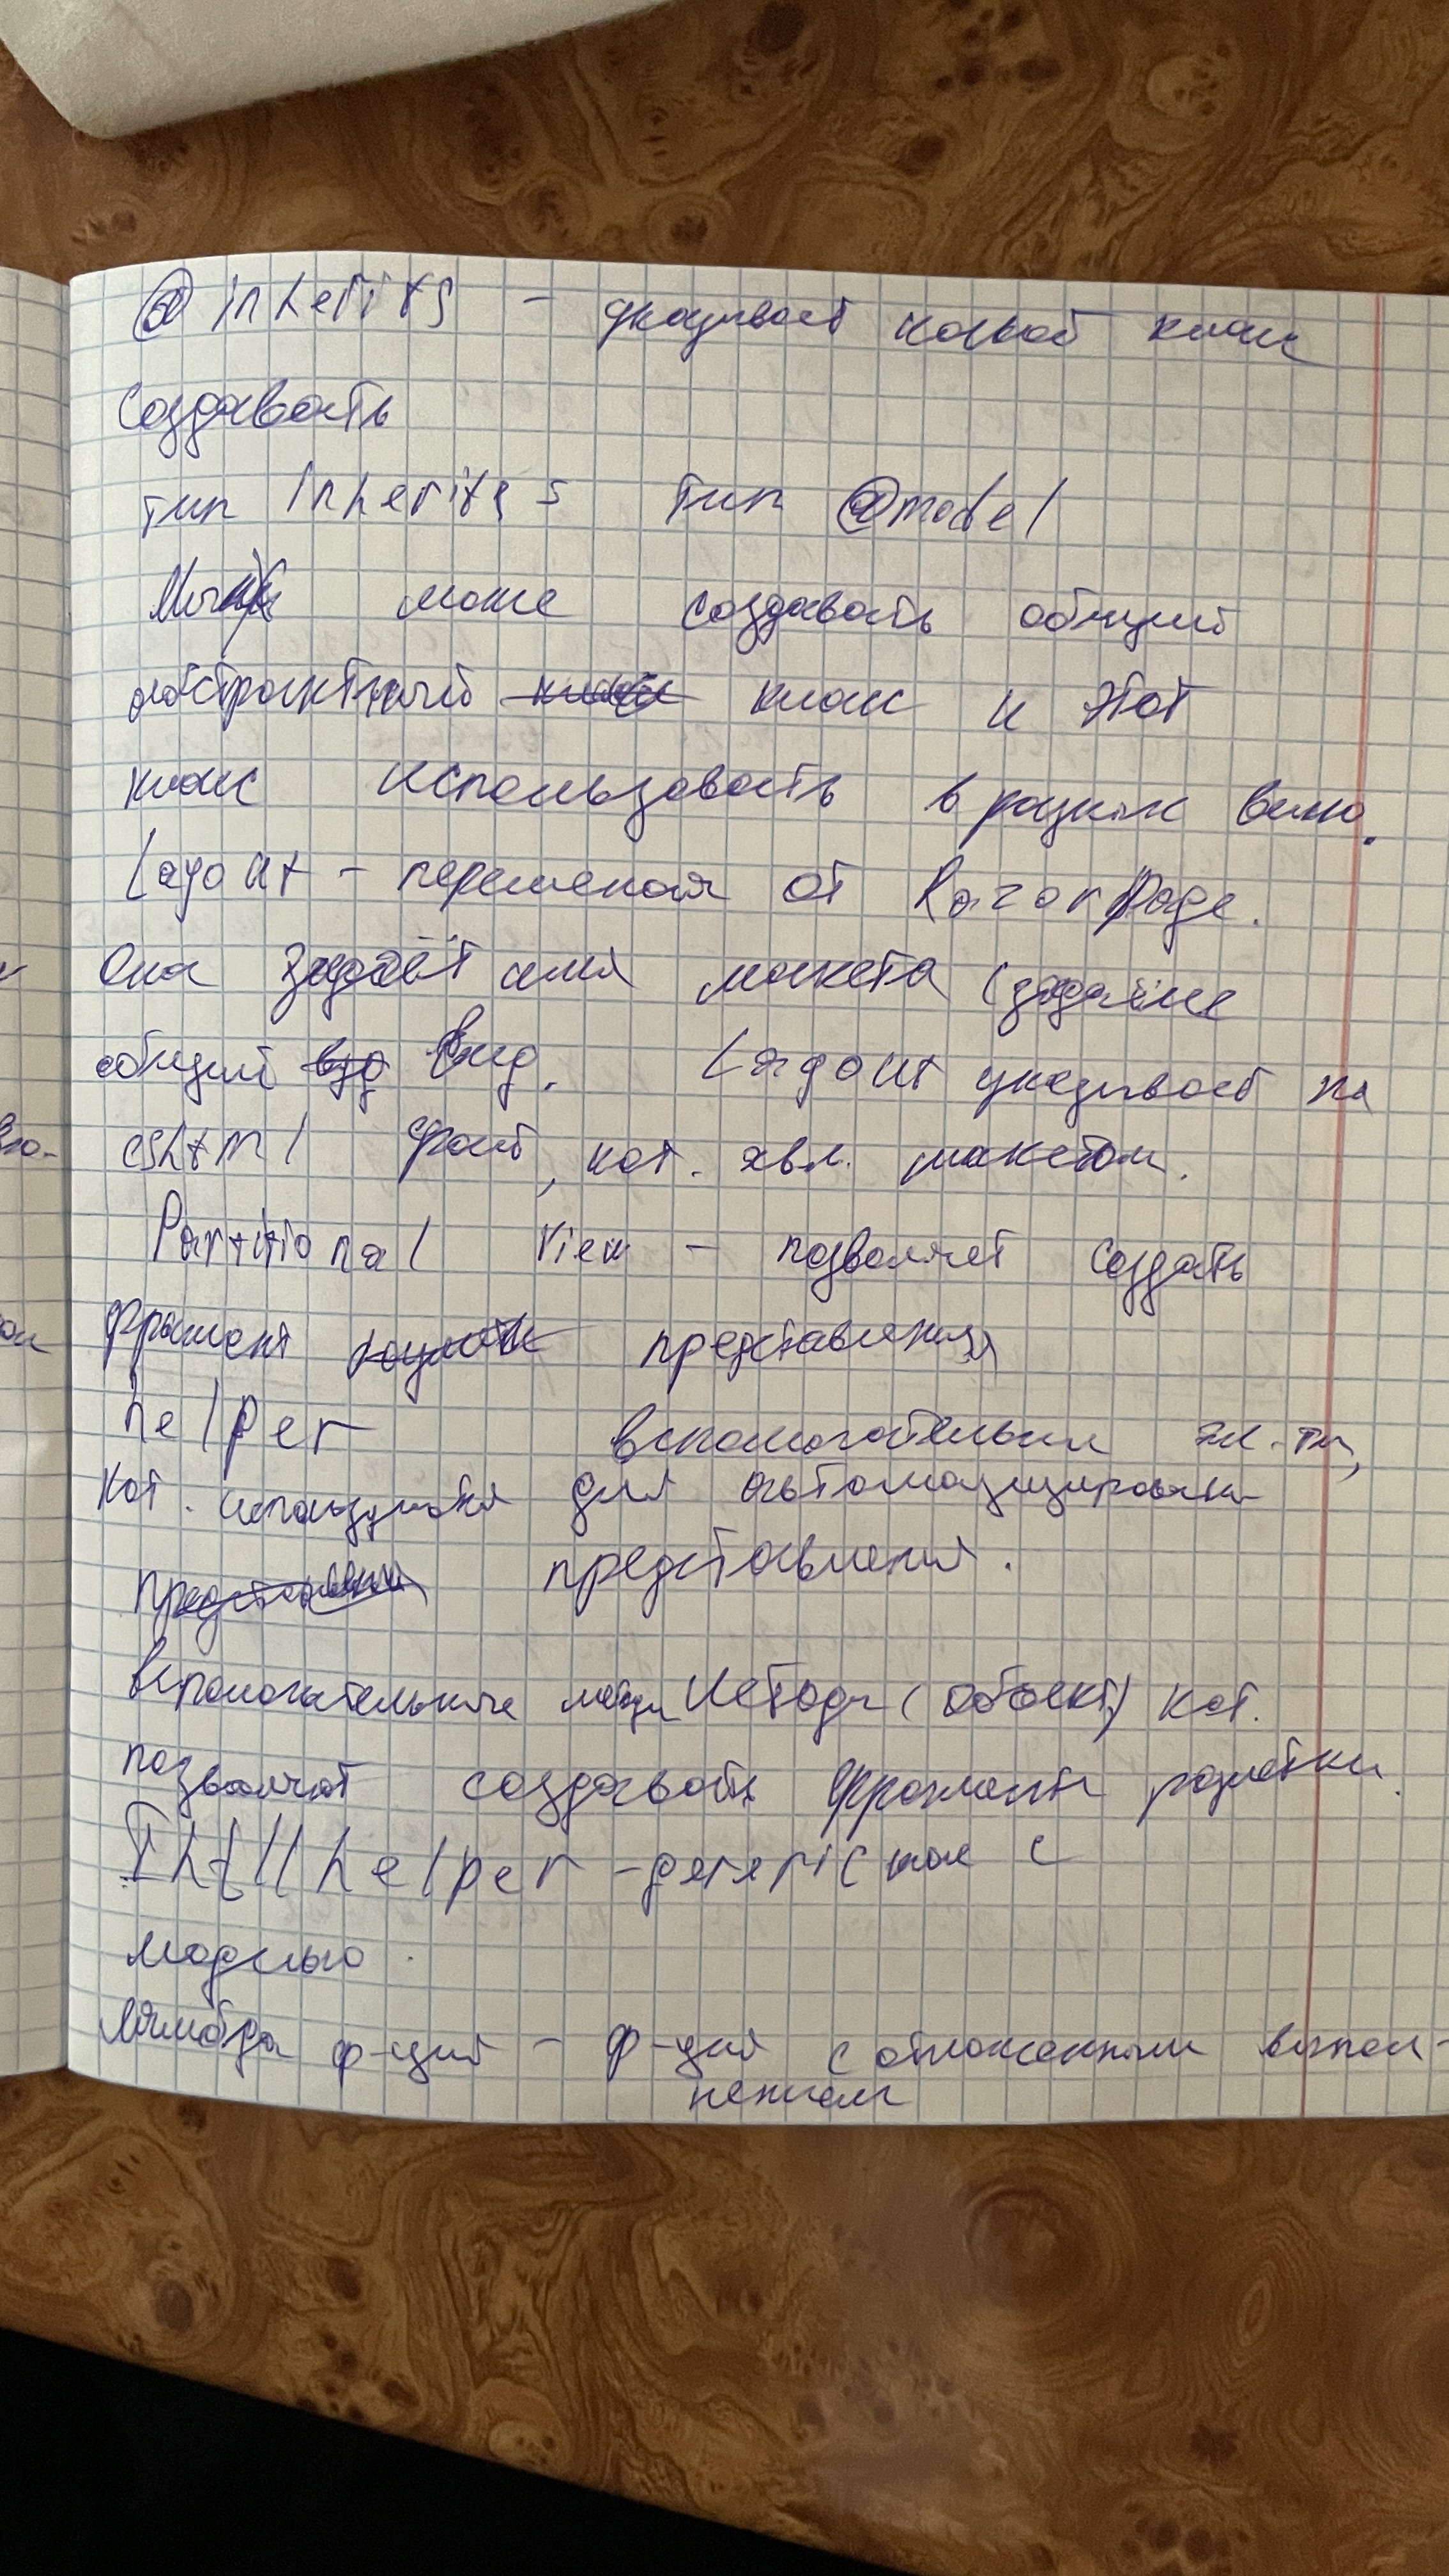 @inherits - указывает какой класс
создавать
тип inherits = тип @model
може создавать общий
абстрактный класс и этот
класс использовать в разных вью.
Layout - переменая от RazorPage.
Она задаёт имя макета (задание
общий вид. Layout указывает на
cshtml файл, кот. явл. макетом.
Partitional View - позволяет создать
фрагмент представления
helper вспомогательные эл-ты,
кот. используются для автоматизировани
представлений.
вспомогательные методы (объект) кот.
позволяют создавать фрагменты разметки.
helper - generic с
моделью.
Лямбда ф-ций - ф-ций с отложенным выпол-
нением